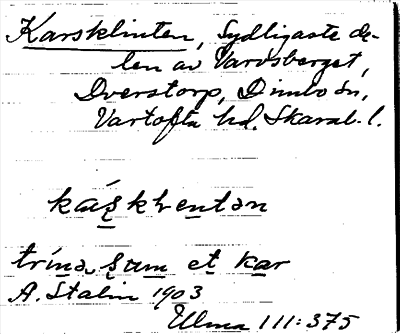 Karsklinten, Sydligaste de-
len av Varvsberget,
Dverstorp, Dimbo sn,
Vartofta hd. Skarab. l.
káʂkhentən
trína ʂum et kar
A. Stalin 1903
Ullma 111:375